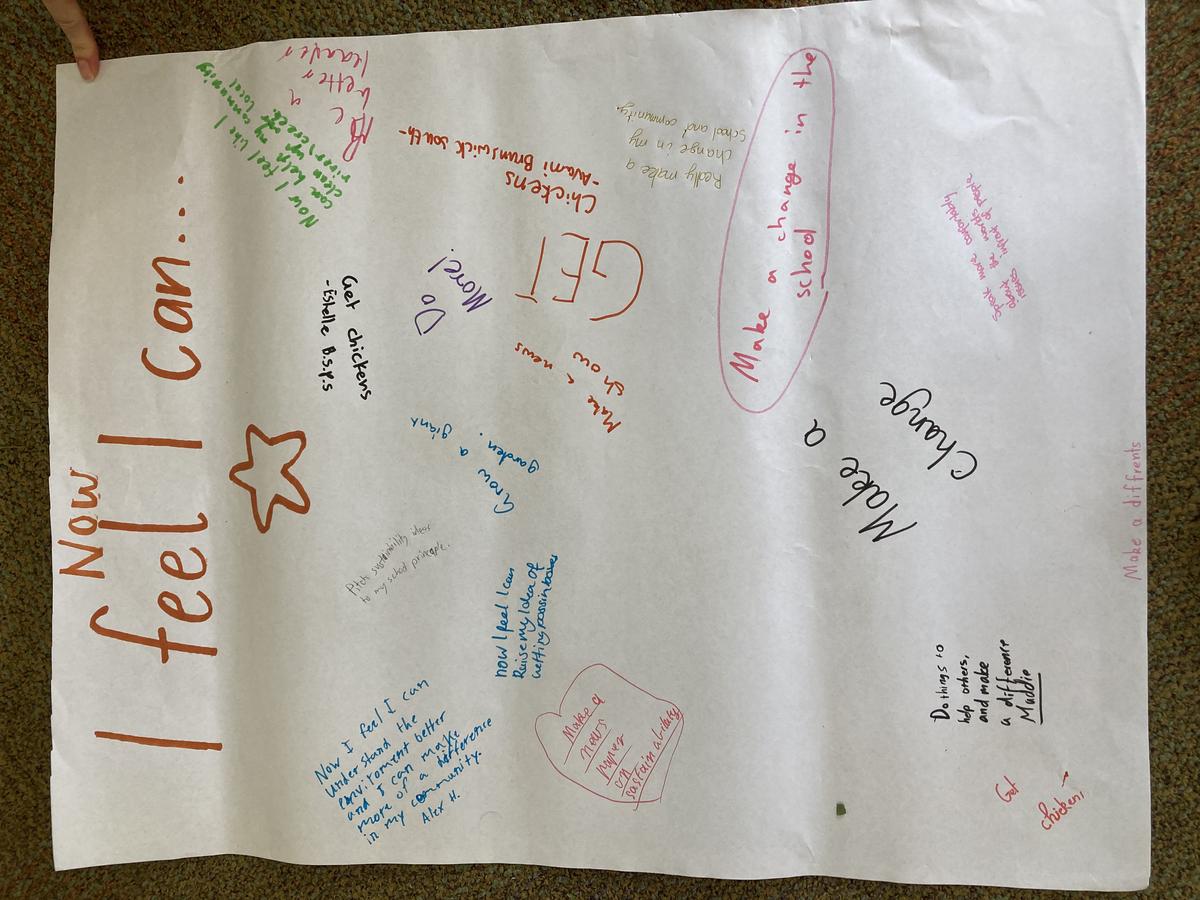 Now
I feel I can...
Now I feel like I
can help my community
clean up my local
river/creek
Be
a
better
leader
Get chickens
- Estelle B.S.P.S
Do
More!
GET
Chickens
- Avami Brunswick south -
Really make a
change in my
school and community.
Make a change in the
school
Make a news
show
Grow a giant
garden.
Pitch sustainability ideas
to my school principle.
now I feel I can
Raise my Idea of
getting possin boxes
Now I feel I can
understand the
enviroment better
and I can make
more of a difference
in my community.
Alex H.
Make a
news
paper
on
sastainability
Make a
Change
Speak more confortably
about the world's
issues infront of people
Make a diffrents
Do things to
help others,
and make
a difference
Maddie
Get
chickens